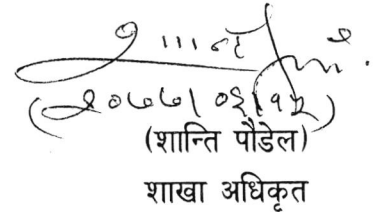 (२०७७।०६।१५)
(शान्ति पौडेल)
शाखा अधिकृत